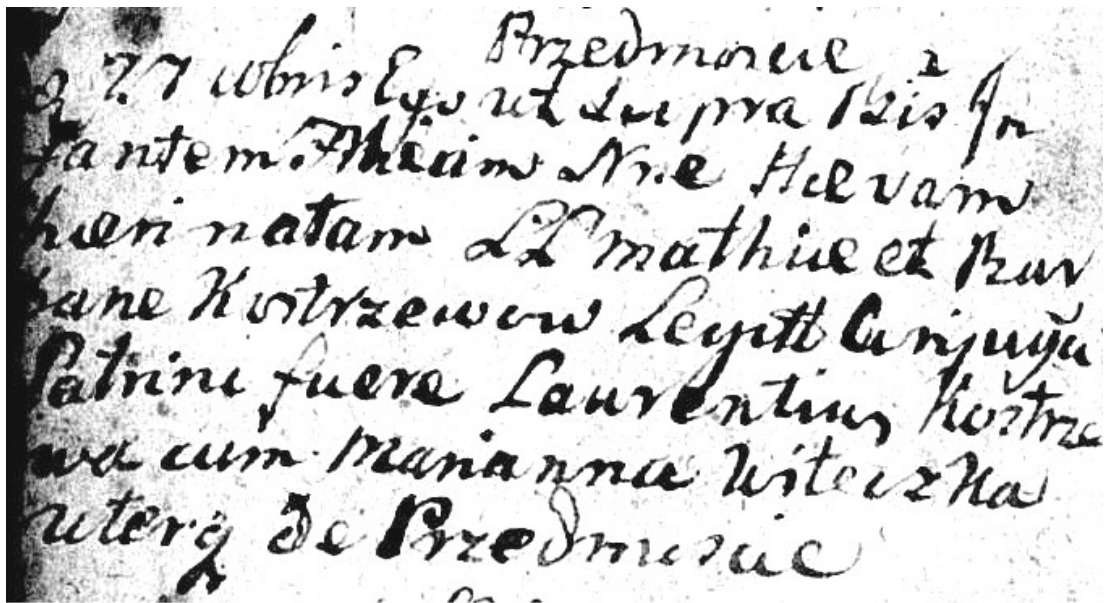 Przedmoscie
27 xbris Ego ut Supra Bzis In
fantem Filiam Nne Hevam
heri natam LL Mathiæ et Bar
bare Kostrzewow Legitt Conjugũ
Patrini fuere Laurentius Kostrze
wa cum Marianna Witeczka
uterq de Przedmoscie